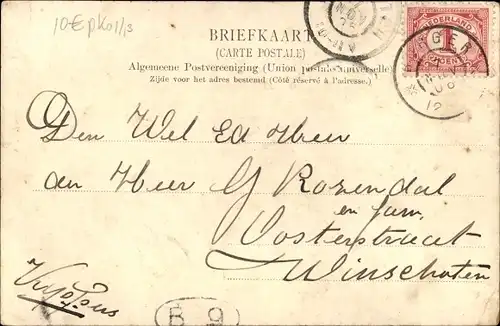 10 € pko 1/3
BRIEFKAART
(CARTE POSTALE)
Algemeene Postvereeniging (Union postale universelle)
Zijde voor het adres bestemd (Côté réservé à l'adresse.)
NEDERLAND
1
Den Wel Ed Heer
den Heer G Rozendal
en fam.
Oosterstraat
Winschoten
B 9